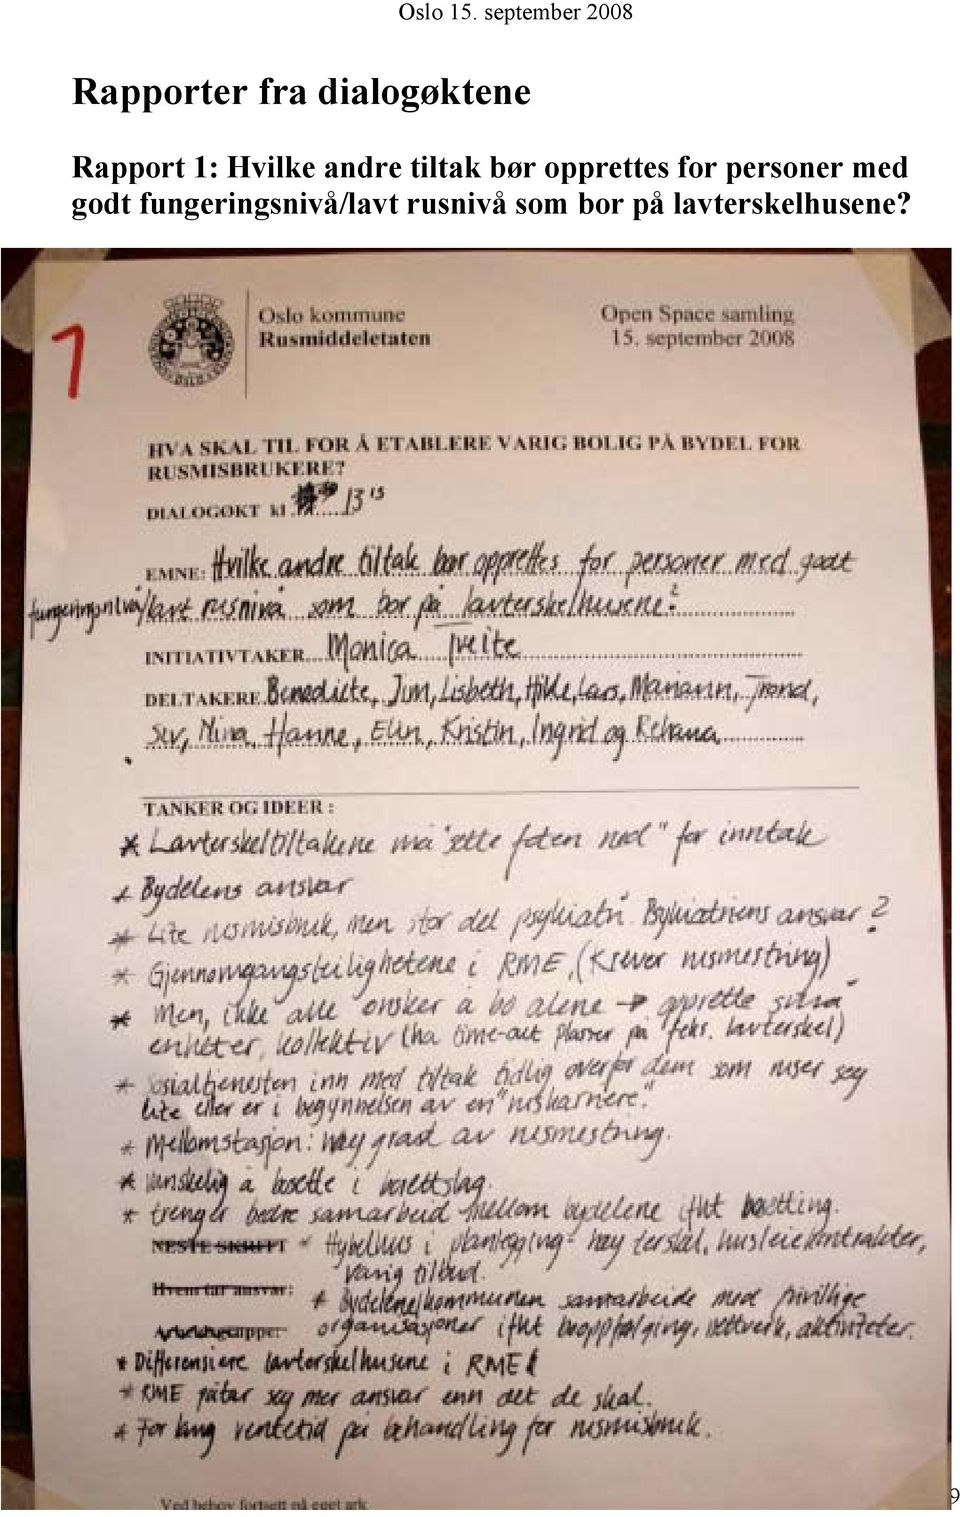 Oslo 15. september 2008
Rapporter fra dialogøktene
Rapport 1: Hvilke andre tiltak bør opprettes for personer med
godt fungeringsnivå/lavt rusnivå som bor på lavterskelhusene?
1
Oslo kommune
Rusmiddeletaten
Open Space samling
15. september 2008
OSLO
HVA SKAL TIL FOR Å ETABLERE VARIG BOLIG PÅ BYDEL FOR
RUSMISBRUKERE?
DIALOGØKT kl 13 15
EMNE: Hvilke andre tiltak bør opprettes for personer med godt
fungeringsnivå/lavt rusnivå som bor på lavterskelhusene?
INITIATIVTAKER Monica Tveite
DELTAKERE Benedicte, Jim, Lisbeth, Hilde, Lars, Mariann, Trond,
Siv, Nina, Hanne, Elin, Kristin, Ingrid og Rehana
TANKER OG IDEER :
* Lavterskeltiltakene må "sette foten ned" for inntak
* Bydelens ansvar
* Lite rusmisbruk, men stor del psykiatri. Psykiatriens ansvar?
* Gjennomgangsleilighetene i RME, (Krever rusmestring)
* Men, ikke alle ønsker å bo alene → opprette små
enheter, kollektiv (ha time-out plasser på f.eks. lavterskel)
* Sosialtjenesten inn med tiltak tidlig overfor dem som ruser seg
lite eller er i begynnelsen av en "ruskarriere."
* Mellomstasjon: høy grad av rusmestring.
* Vanskelig å bosette i borettslag.
* trenger bedre samarbeid mellom bydelene ifht bosetting.
NESTE SKRITT * Hybelhus i planlegging - høy terskel, husleiekontrakter,
varig tilbud.
Hvem tar ansvar: * Bydelene/kommunen samarbeide med frivillige
Arbeidsgruppe: organisasjoner ifht booppfølging, nettverk, aktiviteter.
* Differensiere lavterskelhusene i RME!
* RME påtar seg mer ansvar enn det de skal.
* For lang ventetid på behandling for rusmisbruk.
Ved behov fortsett på eget ark
9